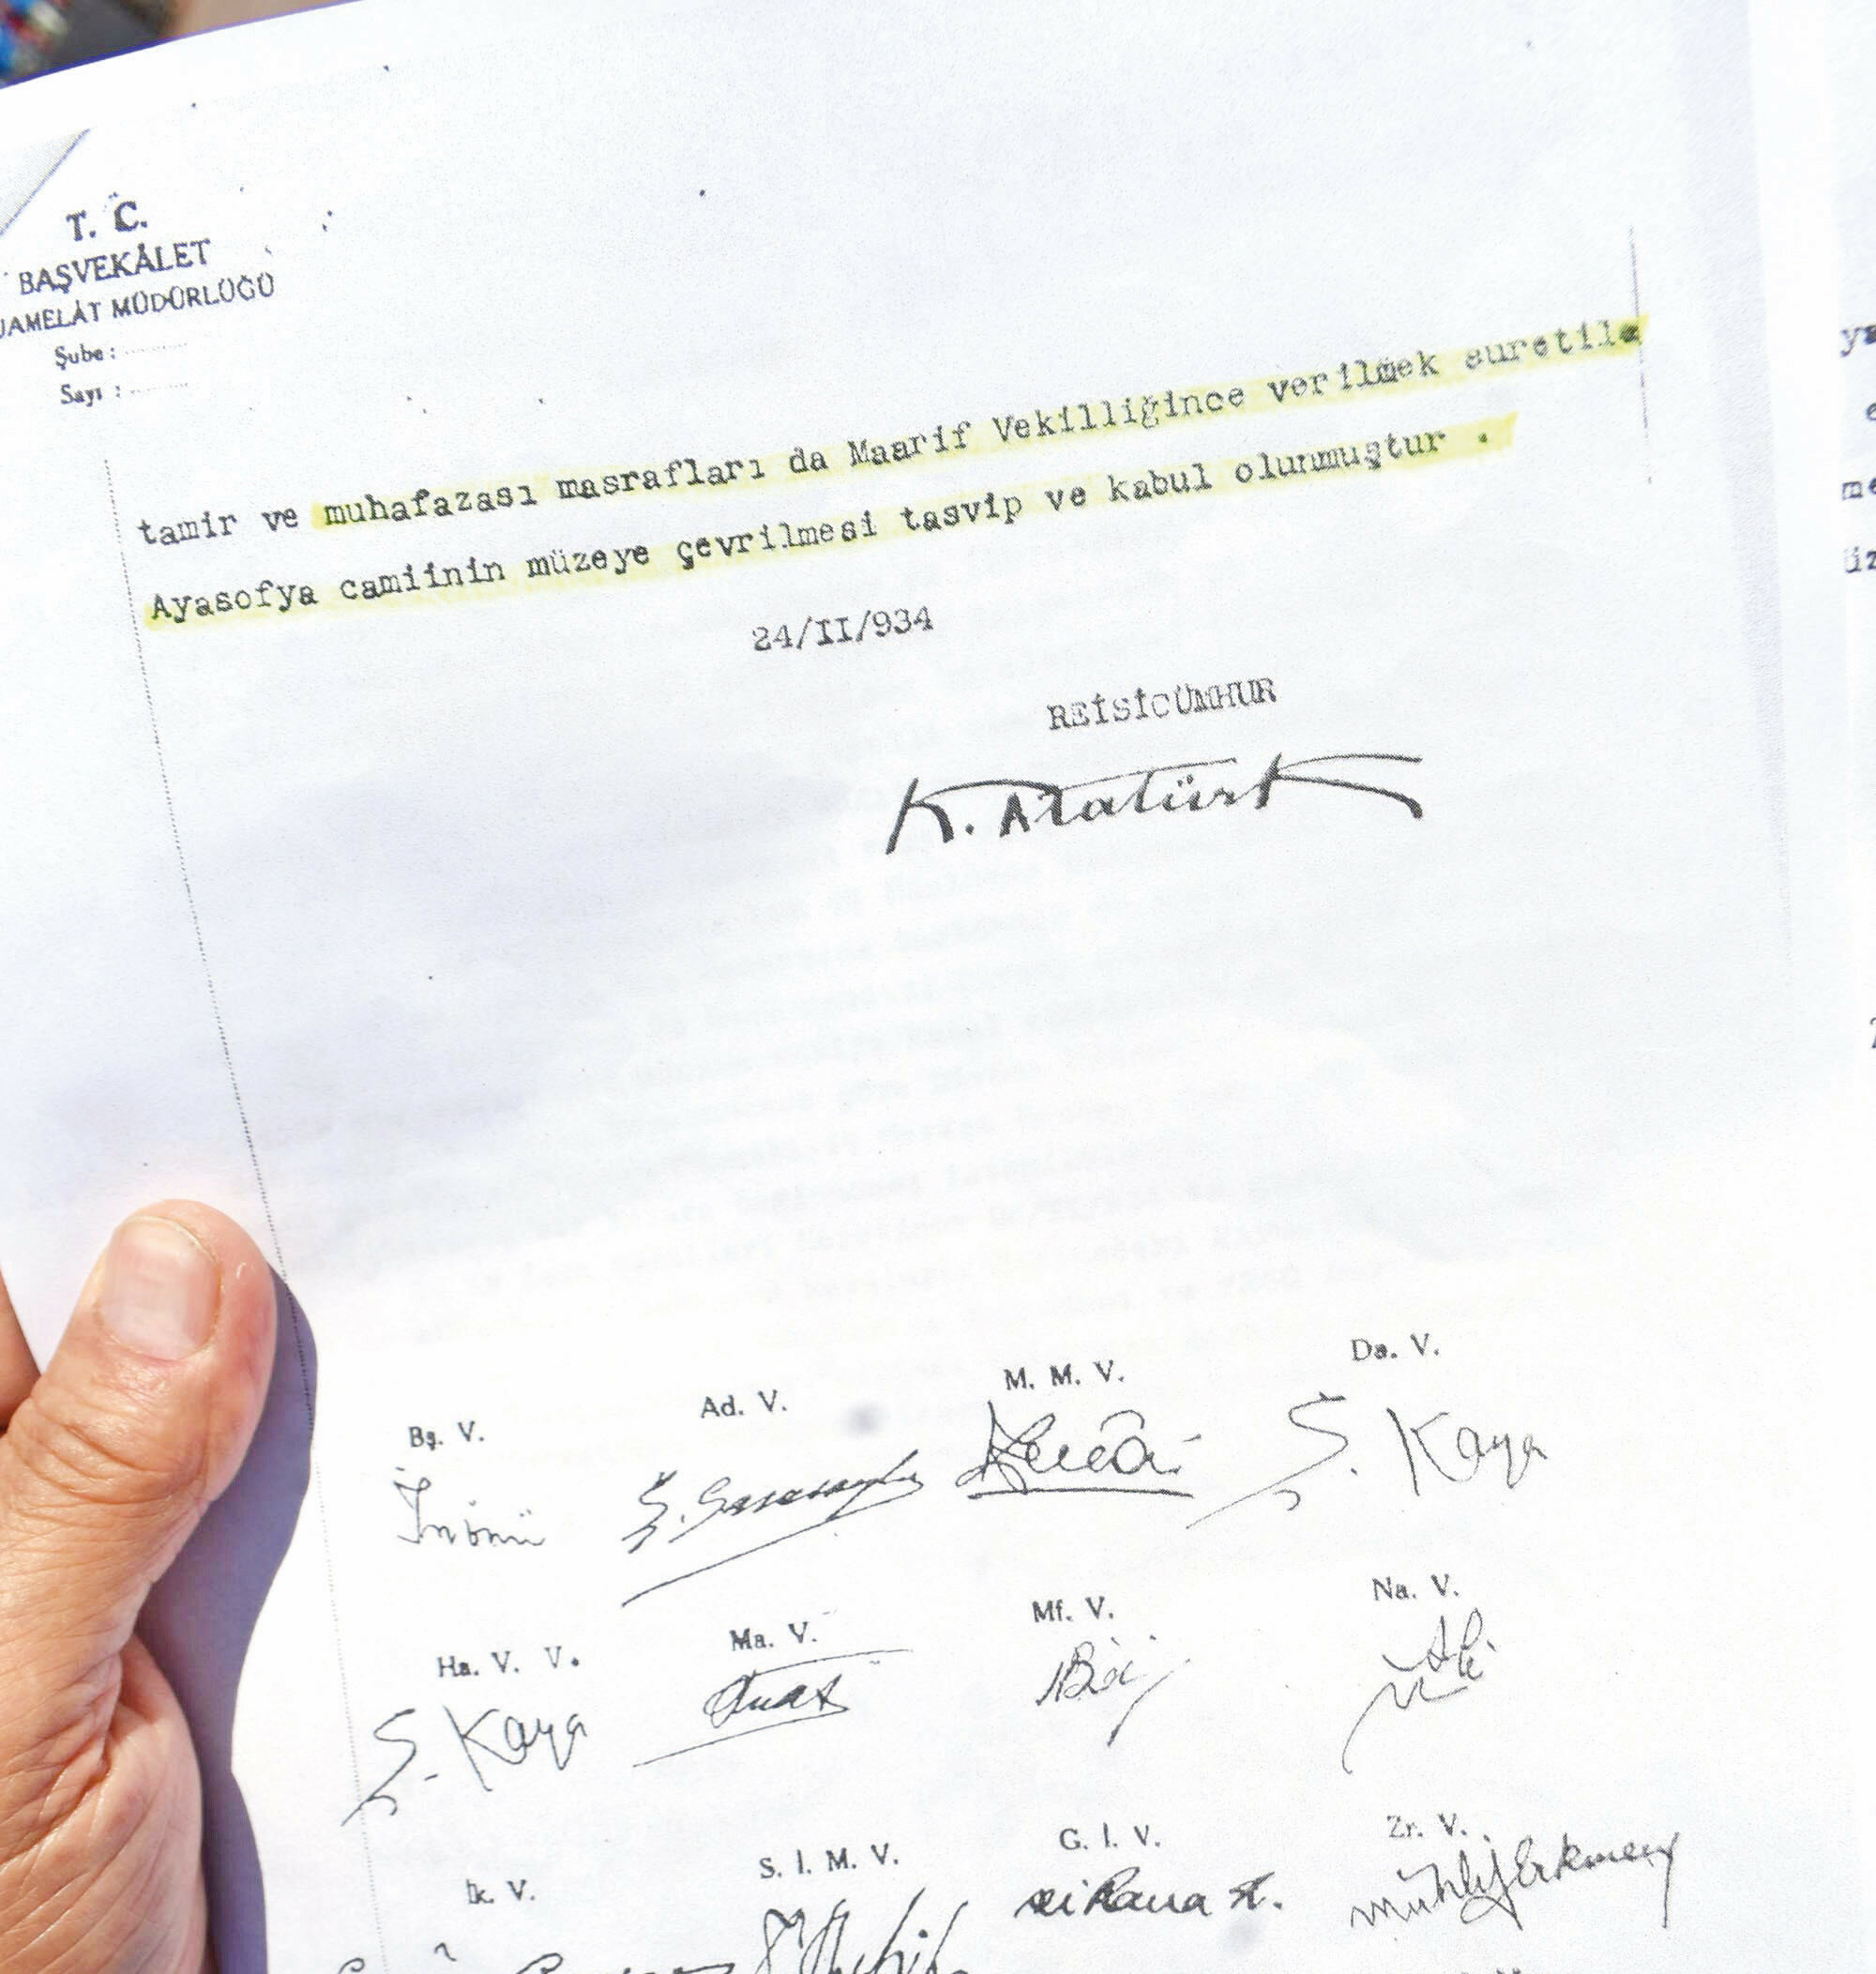 T. C.
BAŞVEKÂLET
UAMELÂT MÜDÜRLÜĞÜ
Şube :
Sayı :
tamir ve muhafazası masrafları da Maarif Vekilliğince verilmek suretile
Ayasofya camiinin müzeye çevrilmesi tasvip ve kabul olunmuştur .
24/II/934
REİSİCÜMHUR
K. Atatürk
Bş. V. Ad. V. M. M. V. Da. V.
İnönü Ş. Kaya
Ha. V. V. Ma. V. Mf. V. Na. V.
Ş. Kaya Fuat Ali
İk. V. S. İ. M. V. G. İ. V. Zr. V.
Ali Rana T. Muhlis Erkmen